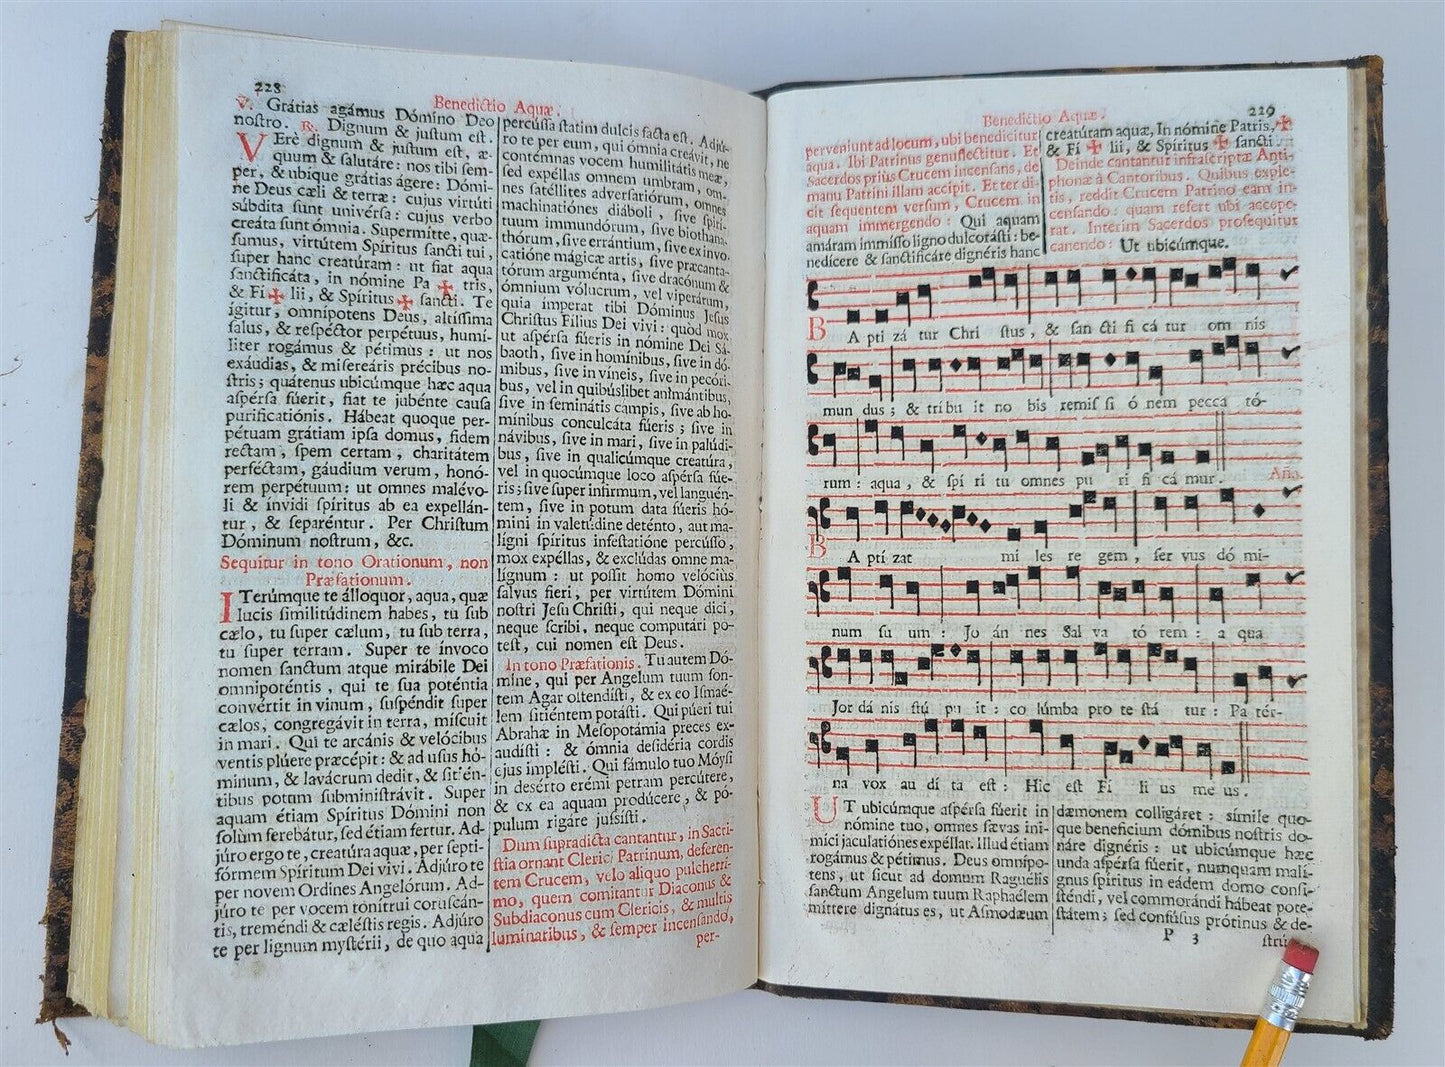 228
Benedictio Aquæ.
℣. Grátias agámus Dómino Deo
nostro. ℟. Dignum & justum est.
VErè dignum & justum est, æ-
quum & salutáre: nos tibi sem-
per, & ubique grátias ágere: Dómi-
ne Deus cæli & terræ: cujus virtúti
súbdita sunt univérsa: cujus verbo
creáta sunt ómnia. Supermitte, quæ-
sumus, virtútem Spíritus sancti tui,
super hanc creatúram: ut fiat aqua
sanctificáta, in nómine Pa ✠ tris,
& Fí ✠ lii, & Spíritus ✠ sancti. Te
igitur, omnípotens Deus, altíssima
salus, & respéctor perpétuus, humí-
liter rogámus & pétimus: ut nos
exáudias, & misereáris précibus no-
stris; quátenus ubicúmque hæc aqua
aspérsa fúerit, fiat te jubénte causa
purificatiónis. Hábeat quoque per-
pétuam grátiam ipsa domus, fidem
rectam, spem certam, charitátem
perféctam, gáudium verum, honó-
rem perpétuum: ut omnes malévo-
li & ínvidi spíritus ab ea expellán-
tur, & separéntur. Per Christum
Dóminum nostrum, &c.
Sequitur in tono Orationum, non
Præfationum.
ITerúmque te álloquor, aqua, quæ
lucis similitúdinem habes, tu sub
cælo, tu super cælum, tu sub terra,
tu super terram. Super te ínvoco
nomen sanctum atque mirábile Dei
omnipoténtis, qui te sua poténtia
convértit in vinum, suspéndit super
cælos, congregávit in terra, míscuit
in mari. Qui te arcánis & velócibus
ventis plúere præcépit: & ad usus hó-
minum, & lavácrum dedit, & sitién-
tibus potum subministrávit. Super
aquam étiam Spíritus Dómini non
solùm ferebátur, sed étiam fertur. Ad-
júro ergo te, creatúra aquæ, per septi-
fórmem Spíritum Dei vivi. Adjúro te
per novem Ordines Angelórum. Ad-
júro te per vocem tonítrui coruscán-
tis, treméndi & cæléstis regis. Adjúro
te per lignum mystérii, de quo aqua
percússa statim dulcis facta est. Adjú-
ro te per eum, qui ómnia creávit, ne
contémnas vocem humilitátis meæ,
sed expéllas omnem umbram, om-
nes satéllites adversariórum, omnes
machinatiónes diáboli, sive spíri-
tuum immundórum, sive biothana-
thórum, sive errántium, sive ex invo-
catióne mágicæ artis, sive præcanta-
tórum arguménta, sive dracónum &
ómnium vólucrum, vel viperárum,
quia imperat tibi Dóminus Jesus
Christus Filius Dei vivi: quòd mox
ut aspérsa fúeris in nómine Dei Sá-
baoth, sive in homínibus, sive in dó-
mibus, sive in víneis, sive in pecóri-
bus, vel in quibúslibet animántibus,
sive in seminátis campis, sive ab ho-
mínibus conculcáta fúeris; sive in
návibus, sive in mari, sive in palúdi-
bus, sive in qualicúmque creatúra,
vel in quocúmque loco aspérsa fúe-
ris; sive super infírmum, vel languén-
tem, sive in potum data fúeris hó-
mini in valetúdine deténto, aut ma-
ligni spíritus infestatióne percússo,
mox expéllas, & exclúdas omne ma-
lígnum: ut possit homo velócius
salvus fíeri, per virtútem Dómini
nostri Jesu Christi, qui neque dici,
neque scribi, neque computári po-
test, cui nomen est Deus.
In tono Præfationis. Tu autem Dó-
mine, qui per Angelum tuum son-
tem Agar ostendísti, & ex eo Ismaé-
lem sitiéntem potásti. Qui púeri tui
Abrahæ in Mesopotámia preces ex-
audísti: & ómnia desidéria cordis
ejus implésti. Qui fámulo tuo Móysi
in desérto erémi petram percútere,
& ex ea aquam prodúcere, & pó-
pulum rigáre jussísti.
Dum supradicta cantantur, in Sacri-
stia ornant Clerici Patrinum, deferen-
tem Crucem, velo aliquo pulcherri-
mo, quem comitantur Diaconus &
Subdiaconus cum Clericis, & multis
luminaribus, & semper incensando,
per-
Benedictio Aquæ.
229
perveniunt ad locum, ubi benedicitur
aqua. Ibi Patrinus genuflectitur. Et
Sacerdos priùs Crucem incensans, de
manu Patrini illam accipit. Et ter di-
cit sequentem versum, Crucem in
aquam immergendo: Qui aquam
amáram immísso ligno dulcorásti: be-
nedícere & sanctificáre dignéris hanc
creatúram aquæ, In nómine Patris, ✠
& Fí ✠ lii, & Spíritus ✠ sancti.
Deinde cantantur infrascriptæ Anti-
phonæ à Cantoribus. Quibus exple-
tis, reddit Crucem Patrino eam in-
censando: quam refert ubi accepe-
rat. Interim Sacerdos prosequitur
canendo: Ut ubicúmque.
BA pti zá tur Chri stus, & san cti fi cá tur om nis
mun dus; & trí bu it no bis remis si ó nem pecca tó-
rum: aqua, & spí ri tu omnes pu ri fi cá mur. Año.
BA ptí zat mi les re gem, ser vus dó mi-
num su um: Jo án nes Sal va tó rem: a qua
Jor dá nis stú pu it: co lúmba pro te stá tur: Pa tér-
na vox au dí ta est: Hic est Fí li us me us.
UT ubicúmque aspérsa fúerit in
nómine tuo, omnes sævas ini-
míci jaculatiónes expéllat. Illud étiam
rogámus & pétimus. Deus omnípo-
tens, ut sicut ad domum Raguélis
sanctum Angelum tuum Raphaélem
míttere dignátus es, ut Asmodæum
dæmonem colligáret: símile quo-
que benefícium dómibus nostris do-
náre dignéris: ut ubicúmque hæc
unda aspérsa fúerit, numquam malí-
gnus spíritus in eádem domo consi-
sténdi, vel commorándi hábeat pote-
státem; sed confúsus prótinus & de-
P 3
strú